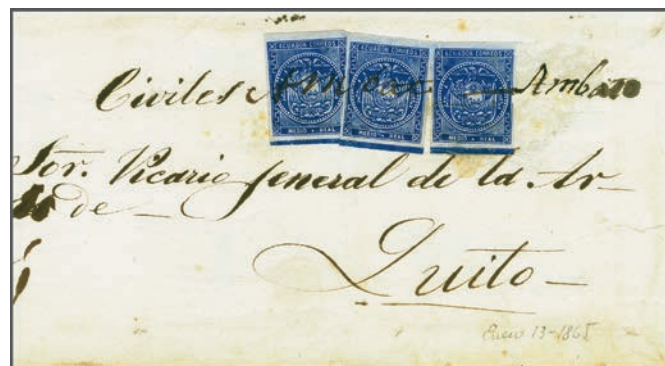 ECUADOR CORREOS ECUADOR CORREOS ECUADOR CORREOS
MEDIO REAL MEDIO REAL MEDIO REAL
Civiles Ambato
Sor. Vicario general de la Ar-
de
Quito
Enero 13-1865